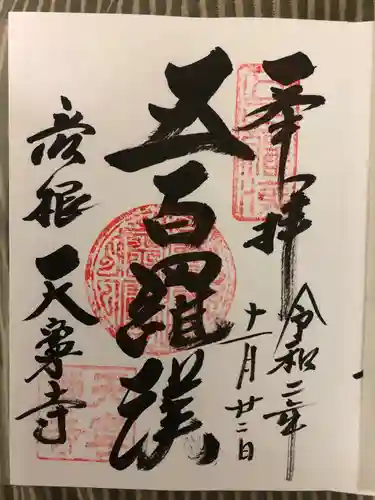 奉拝
令和二年
十一月廿二日
五百羅漢
彦根天寧寺